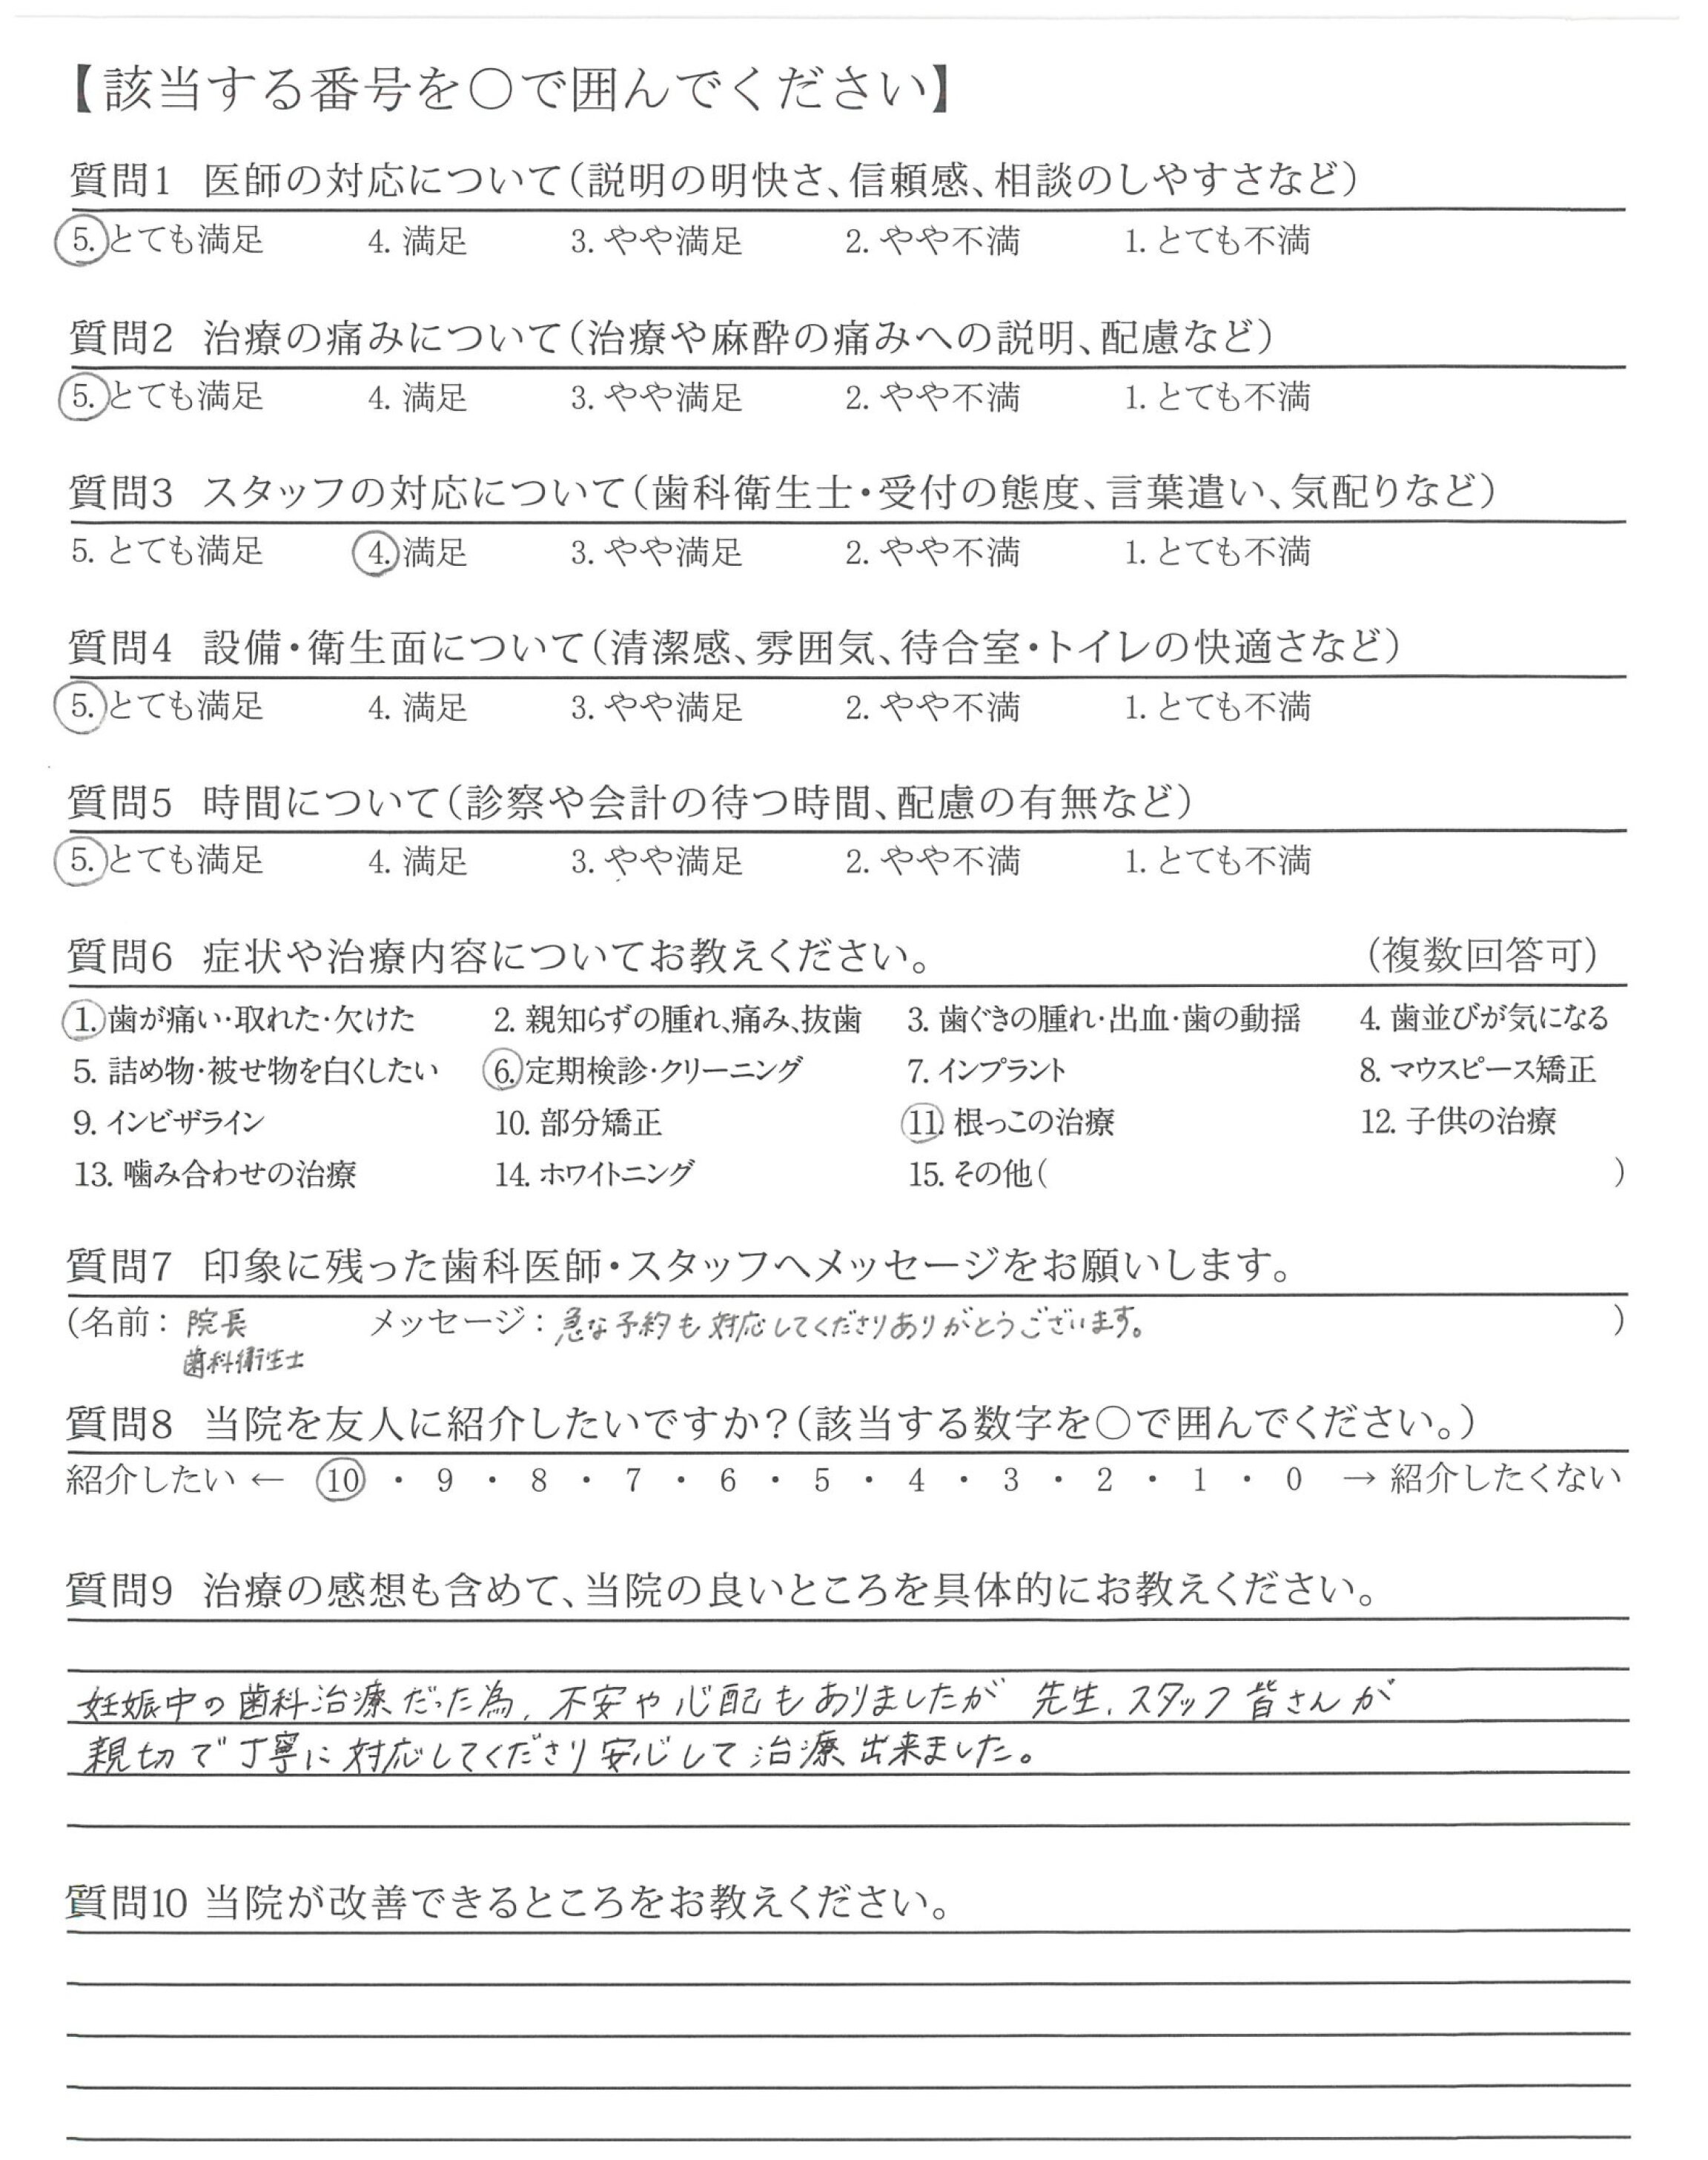 【該当する番号を○で囲んでください】
質問1 医師の対応について(説明の明快さ、信頼感、相談のしやすさなど)
5. とても満足 4. 満足 3. やや満足 2. やや不満 1. とても不満
質問2 治療の痛みについて(治療や麻酔の痛みへの説明、配慮など)
5. とても満足 4. 満足 3. やや満足 2. やや不満 1. とても不満
質問3 スタッフの対応について(歯科衛生士・受付の態度、言葉遣い、気配りなど)
5. とても満足 4. 満足 3. やや満足 2. やや不満 1. とても不満
質問4 設備・衛生面について(清潔感、雰囲気、待合室・トイレの快適さなど)
5. とても満足 4. 満足 3. やや満足 2. やや不満 1. とても不満
質問5 時間について(診察や会計の待つ時間、配慮の有無など)
5. とても満足 4. 満足 3. やや満足 2. やや不満 1. とても不満
質問6 症状や治療内容についてお教えください。 (複数回答可)
1. 歯が痛い・取れた・欠けた 2. 親知らずの腫れ、痛み、抜歯 3. 歯ぐきの腫れ・出血・歯の動揺 4. 歯並びが気になる
5. 詰め物・被せ物を白くしたい 6. 定期検診・クリーニング 7. インプラント 8. マウスピース矯正
9. インビザライン 10. 部分矯正 11. 根っこの治療 12. 子供の治療
13. 噛み合わせの治療 14. ホワイトニング 15. その他( )
質問7 印象に残った歯科医師・スタッフへメッセージをお願いします。
(名前: 院長 メッセージ: 急な予約も対応してくださりありがとうございます。 )
歯科衛生士
質問8 当院を友人に紹介したいですか?(該当する数字を○で囲んでください。)
紹介したい ← 10 ・ 9 ・ 8 ・ 7 ・ 6 ・ 5 ・ 4 ・ 3 ・ 2 ・ 1 ・ 0 → 紹介したくない
質問9 治療の感想も含めて、当院の良いところを具体的にお教えください。
妊娠中の歯科治療だった為、不安や心配もありましたが 先生、スタッフ皆さんが
親切で丁寧に対応してくださり安心して治療出来ました。
質問10 当院が改善できるところをお教えください。